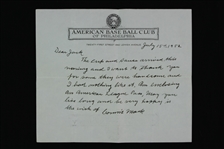 AMERICAN BASE BALL CLUB
OF PHILADELPHIA
July 15th, 1952
Dear Jack,
The cup and saucer arrived this
morning and I want to thank you
for same they were handsome and
I have nothing like it. Am enclosing
an American League Pass, may you
live long and be very happy is
the wish of Connie Mack